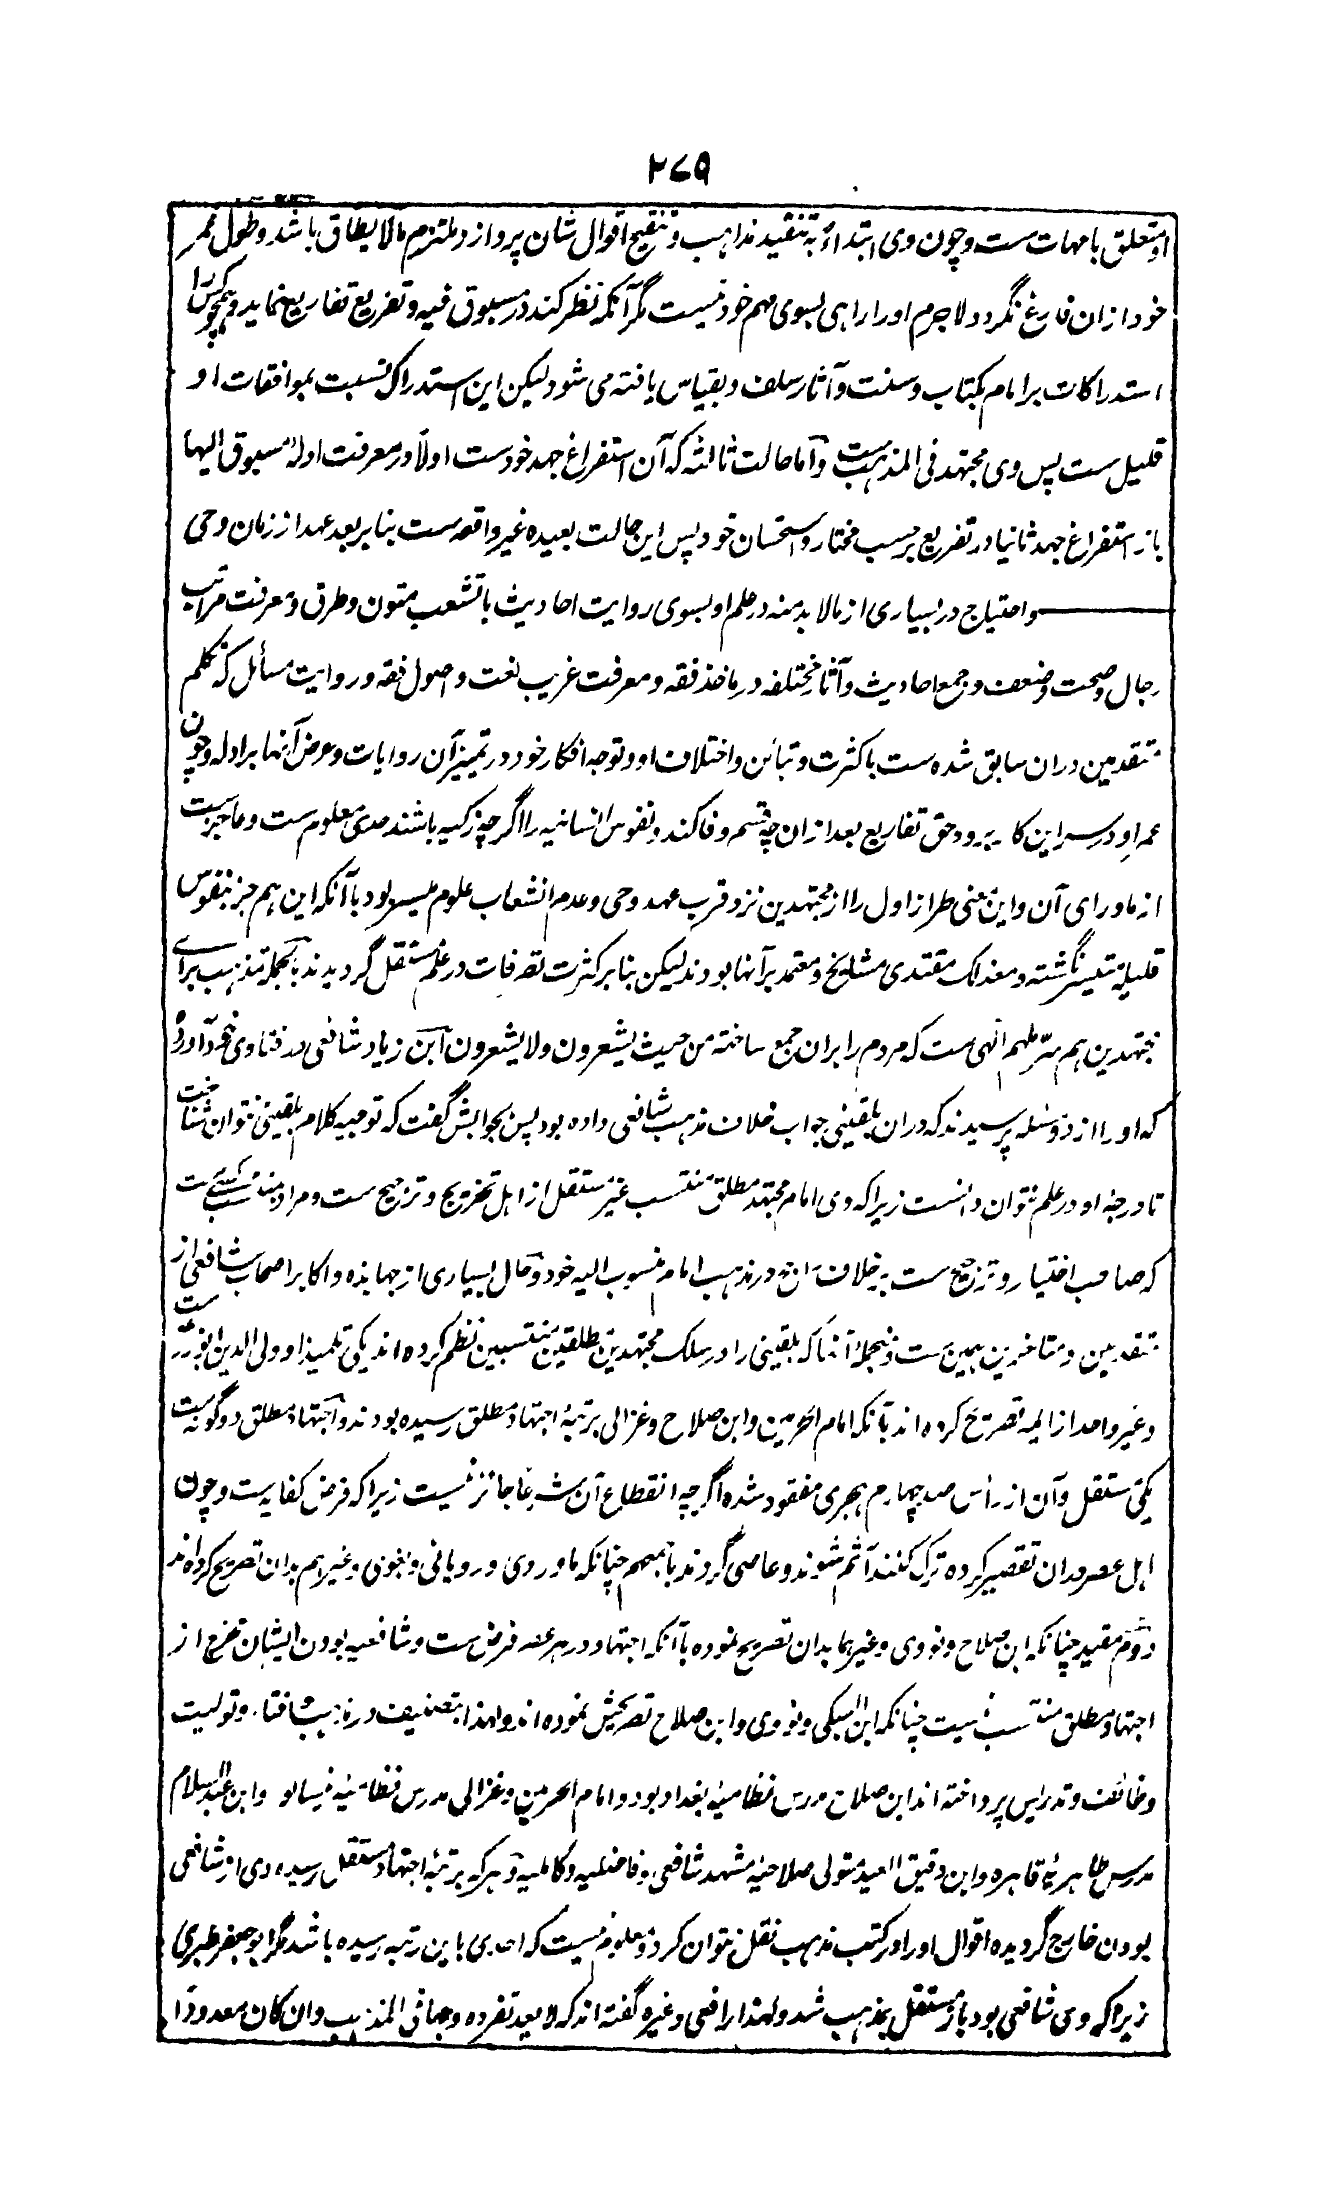 ۲۷۹
او متعلق بامهات ست و چون وی ابتداءً به تنقید مذاهب و تنقیح اقوال شان پردازد ملتزم مالایطاق باشد و طول عمر
خود ازان فارغ نگردد لاجرم او را راهی بسوی مهم خود نیست مگر آنکه نظر کند در مسبوق فیه و تفریع تفاریع نماید و همچو کس را
استدراکات بر امام بکتاب و سنت و آثار سلف و بقیاس یافته می شود لیکن این استدراک نسبت بموافقات او
قلیل ست پس وی مجتهد فی المذهب ست و اما حالت ثالثه که آن استفراغ جهد خودست اولاً در معرفت اولهٔ مسبوق الیها
باز استفراغ جهد ثانیا در تفریع برحسب مختار و استحسان خود پس این حالت بعیده غیر واقعه ست بنابر بعد عهد از زمان وحی
و احتیاج در بسیاری از مالابد منه در علم او بسوی روایت احادیث با تشعب متون و طرق و معرفت مراتب
رجال و صحت و ضعف و جمع احادیث و آثار مختلفه در ماخذ فقه و معرفت غریب لغت و اصول فقه و روایت مسائل که تکلم
متقدمین دران سابق شده ست با کثرت و تباین و اختلاف او و توجه افکار خود در تمییز آن روایات و عرض آنها بر ادله و چون
عمر او در سر این کار برود حق تفاریع بعد ازان چه قسم وفا کند و نفوس انسانیه را اگرچه زکیه باشند حدی معلوم ست و عاجزست
از ماورای آن و این معنی طراز اول را از مجتهدین نزد قرب عهد وحی و عدم انشعاب علوم میسر بود با آنکه این هم جز بنفوس
قلیله متیسر نگشته و معذلک مقتدی مشایخ و معتمد بر آنها بودند لیکن بنابر کثرت تصرفات در علم مستقل گردیدند بالجمله تمذهب برای
مجتهدین هم سرّ ملهم الهی ست که مردم را بران جمع ساخته من حیث یشعرون و لایشعرون ابن زیاد شافعی در فتاوی خود آورده
که او را از دو مسئله پرسیدند که دران بلقینی جواب خلاف مذهب شافعی داده بود پس بجوابش گفت که توجیه کلام بلقینی نتوان شناخت
تا درجهٔ او در علم نتوان دانست زیرا که وی امام مجتهد مطلق منتسب غیر مستقل از اهل تخریج و ترجیح ست و مراد منتسب کسی ست
که صاحب اختیار و ترجیح ست بر خلاف راجح در مذهب امام منسوب الیه خود و حال بسیاری از جهابذه و اکابر اصحاب شافعی از
متقدمین و متاخرین همین ست و منجمله آنها که بلقینی را در سلک مجتهدین مطلقین منتسبین نظم کرده اند یکی تلمیذ او ولی الدین ابوزرعه ست
و غیر واحد از ائمه تصریح کرده اند بآنکه امام الحرمین و ابن صلاح و غزالی برتبهٔ اجتهاد مطلق رسیده بودند و اجتهاد مطلق دو گونه ست
یکی مستقل و آن از رأس صد چهارم هجری مفقود شده اگرچه انقطاع آن شرعا جائز نیست زیرا که فرض کفایه ست و چون
اهل عصر دران تقصیر کرده ترک کنند آثم شوند و عاصی گردند باجمعهم چنانکه ماوردی و رویانی و بغوی و غیرهم بدان تصریح کرده اند
دوم مقید چنانکه ابن صلاح و نووی و غیرهما بدان تصریح نموده بآنکه اجتهاد در هر عصر فرض ست و شافعیه بودن ایشان مخرج از
اجتهاد مطلق منتسب نیست چنانکه ابن السبکی و نووی و ابن صلاح تصریحش نموده اند و لهذا بتصنیف در مذهب و افتاء و تولیت
وظائف و تدریس پرداخته اند ابن صلاح مدرس نظامیهٔ بغداد بود و امام الحرمین و غزالی مدرس نظامیهٔ نیساپور و ابن عبدالسلام
مدرس ظاهریهٔ قاهره و ابن دقیق العید متولی صلاحیهٔ مشهد شافعی و فاضلیه و کاملیه و هر که برتبهٔ اجتهاد مستقل رسیده وی از شافعی
بودن خارج گردیده اقوال او را در کتب مذهب نقل نتوان کرد و معلوم نیست که احدی باین رتبه رسیده باشد مگر ابو جعفر طبری
زیرا که وی شافعی بود باز مستقل بمذهب شد و لهذا رافعی و غیره گفته اند که لا یعد تفرده وجها فی المذهب و ان کان معدودا